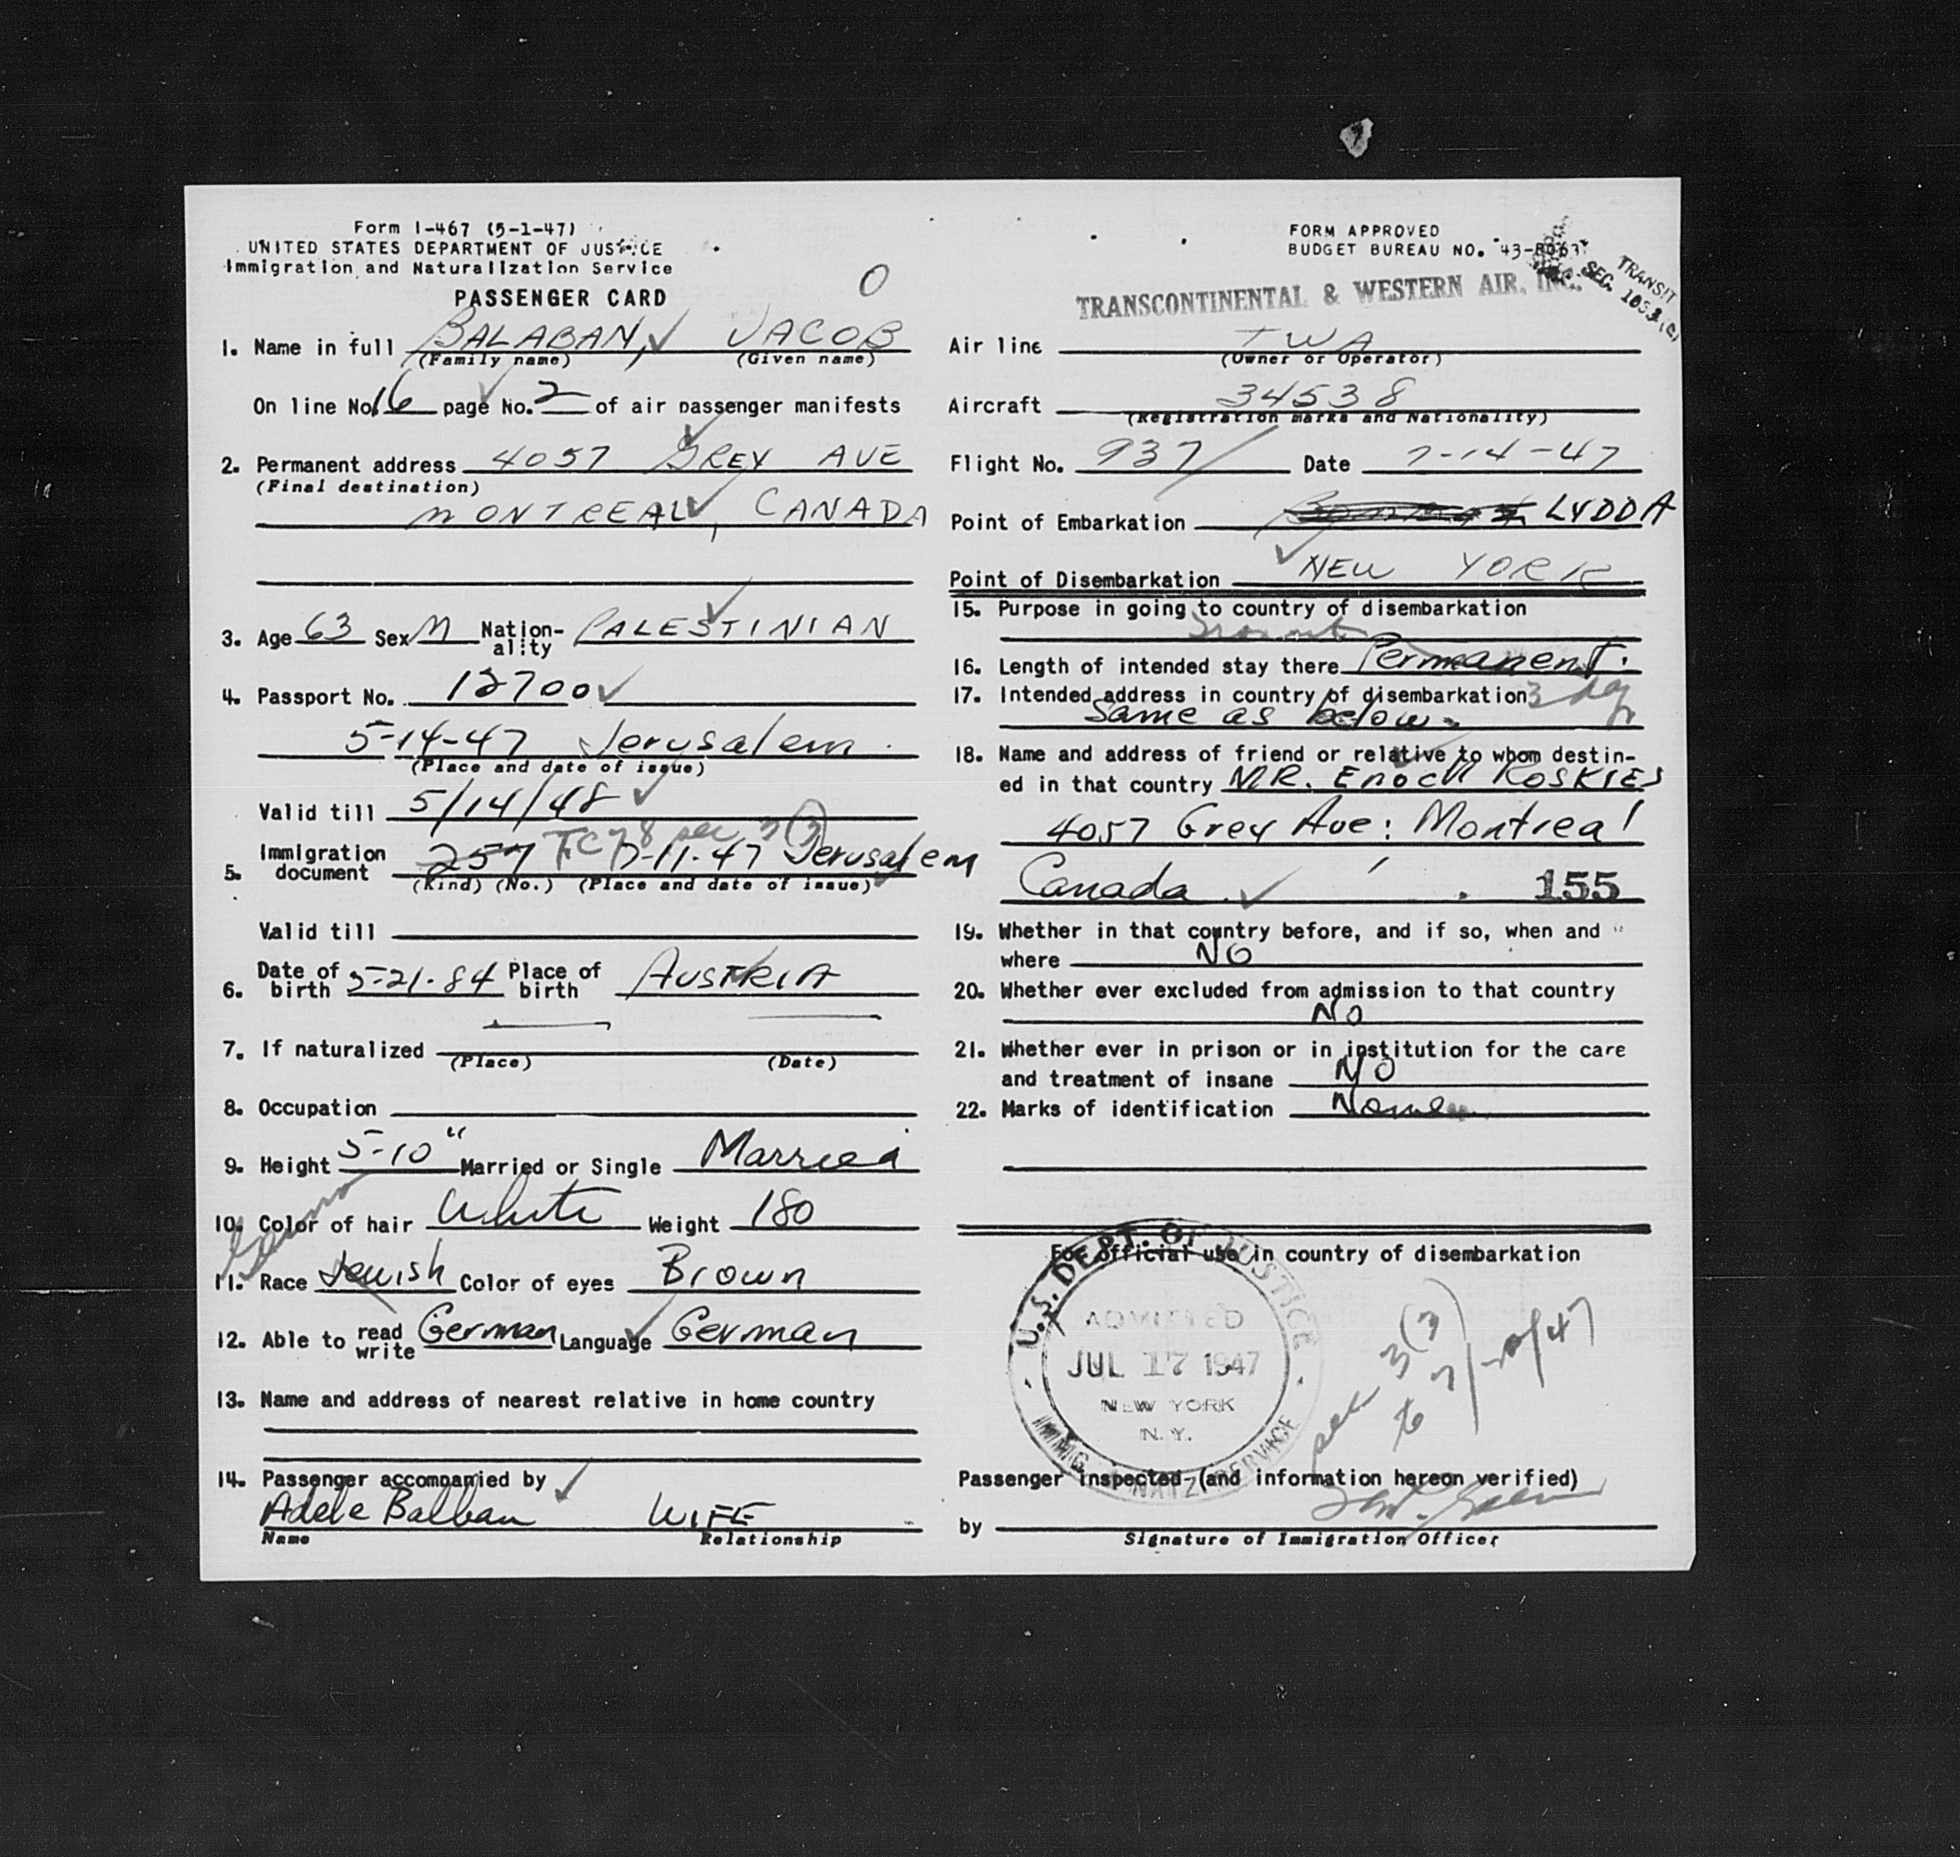 Form I-467 (5-1-47)
UNITED STATES DEPARTMENT OF JUSTICE
Immigration and Naturalization Service
PASSENGER CARD
O
1. Name in full BALABAN, JACOB
(Family name) (Given name)
On line No. 16 page No. 2 of air passenger manifests
2. Permanent address 4057 GREY AVE
(Final destination)
MONTREAL, CANADA
3. Age 63 Sex M Nation-ality PALESTINIAN
4. Passport No. 12700
5-14-47 Jerusalem
(Place and date of issue)
Valid till 5/14/48
TC 78 sec 3(3)
5. Immigration document 257 7-11-47 Jerusalem
(Kind) (No.) (Place and date of issue)
Valid till
6. Date of birth 5-21-84 Place of birth AUSTRIA
7. If naturalized
(Place) (Date)
8. Occupation
9. Height 5-10" Married or Single Married
10. Color of hair White Weight 180
German
11. Race Jewish Color of eyes Brown
12. Able to read write German Language German
13. Name and address of nearest relative in home country
14. Passenger accompanied by
Adele Balban WIFE
Name Relationship
FORM APPROVED
BUDGET BUREAU NO. 43-R063
TRANSIT
SEC.
TRANSCONTINENTAL & WESTERN AIR, INC.
Air line TWA
(Owner or Operator)
Aircraft 34538
(Registration marks and Nationality)
Flight No. 937 Date 7-14-47
Point of Embarkation LYDDA
Point of Disembarkation NEW YORK
15. Purpose in going to country of disembarkation
Transit
16. Length of intended stay there Permanent.
17. Intended address in country of disembarkation 3 day
Same as below.
18. Name and address of friend or relative to whom destin-
ed in that country MR. Enoch ROSKIES
4057 Grey Ave: Montreal
Canada 155
19. Whether in that country before, and if so, when and
where NO
20. Whether ever excluded from admission to that country
No
21. Whether ever in prison or in institution for the care
and treatment of insane NO
22. Marks of identification None
For official use in country of disembarkation
U.S. DEPT. OF JUSTICE
ADMITTED
JUL 17 1947
NEW YORK
N.Y.
IMMIG. & NATZ. SERVICE
sec 3(3)
to 7/20/47
Passenger inspected (and information hereon verified)
by
Signature of Immigration Officer